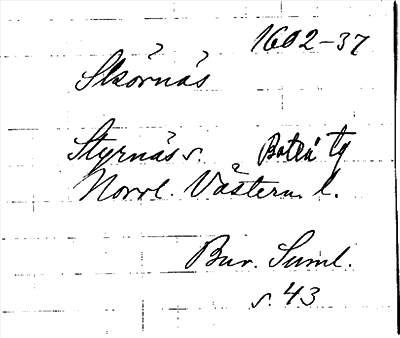 1602-37
Skörnäs
Styrnäs s. Boteå tg
Norrl. Västern. l.
Bur. Suml.
s. 43